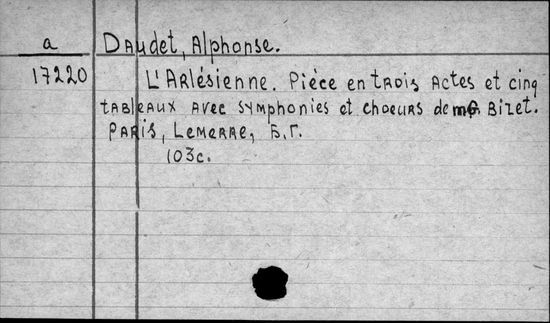 a Daudet, Alphonse.
17220 L'Arlésienne. Pièce en trois actes et cinq
tableaux avec symphonies et choeurs de m. G. Bizet.
Paris, Lemerre, Б.Г.
103c.